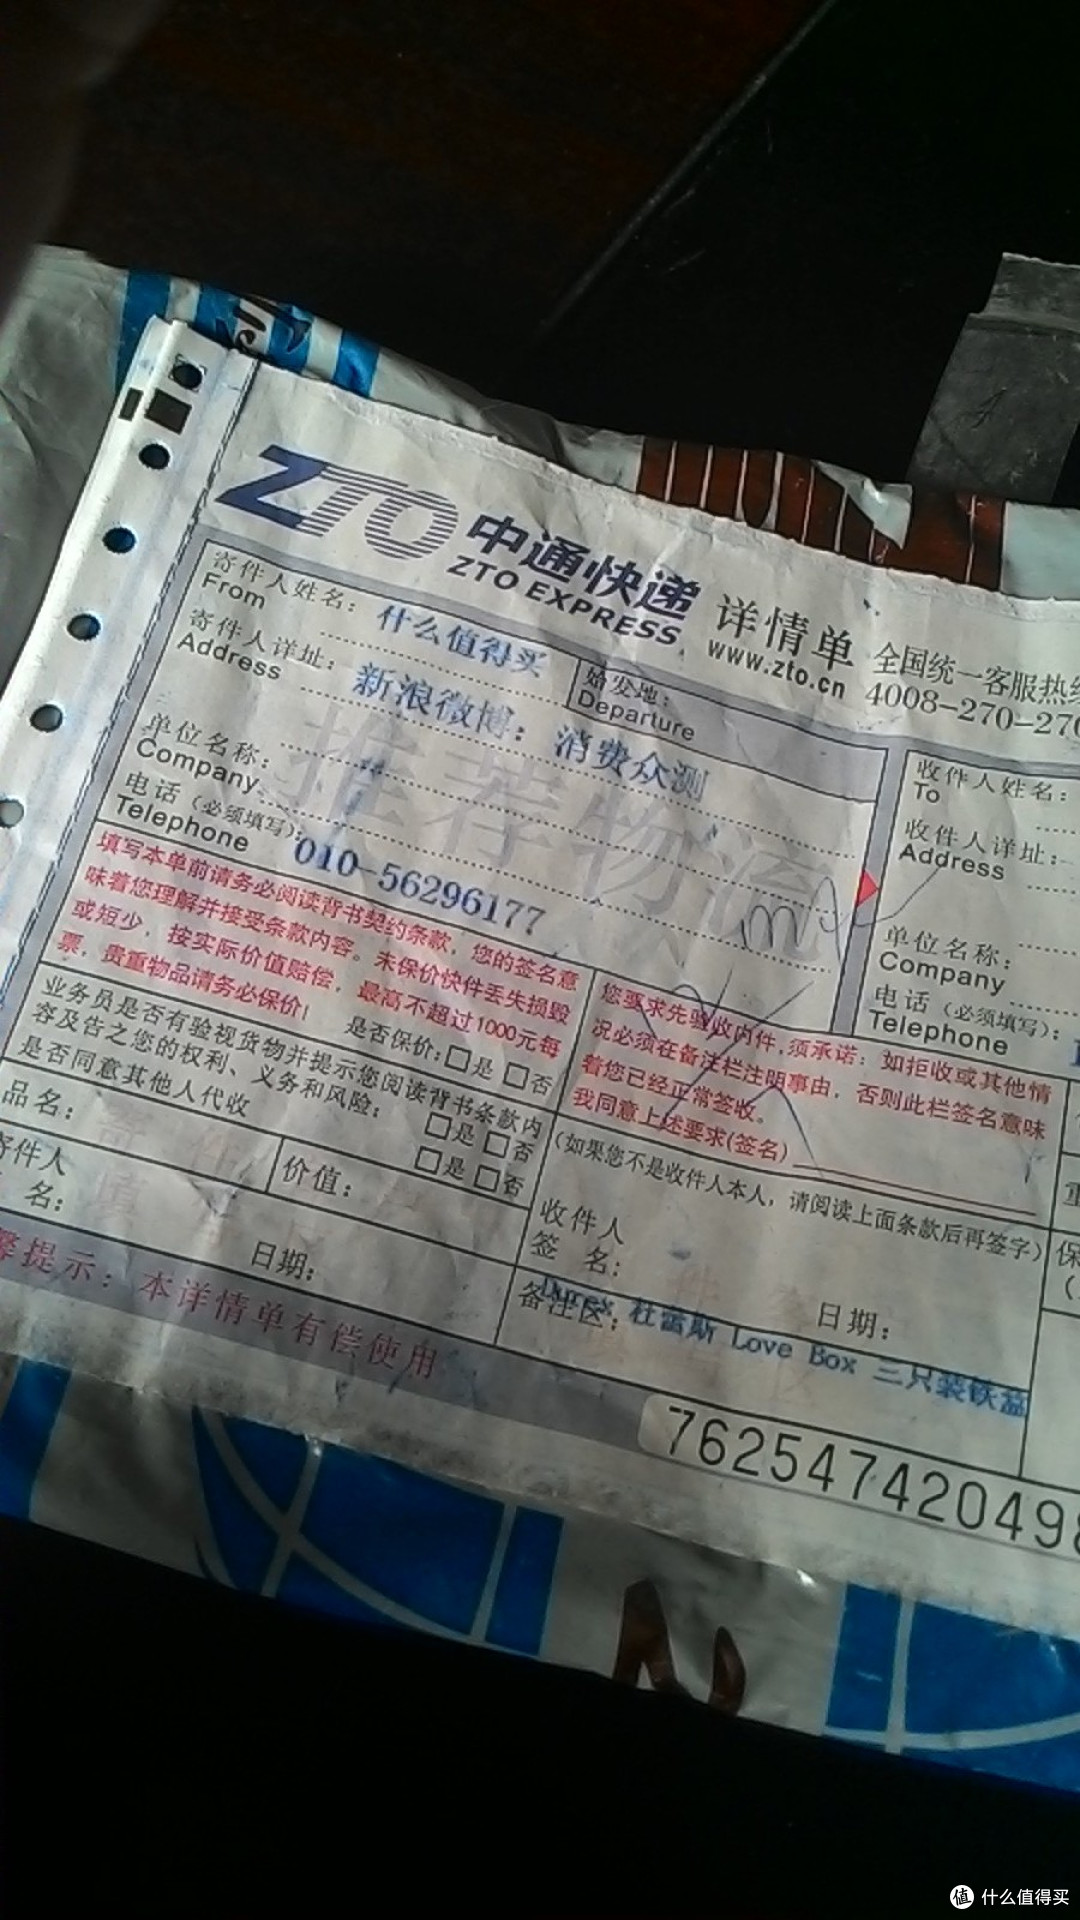 ZTO 中通快递
ZTO EXPRESS
详情单
www.zto.cn
全国统一客服热线
4008-270-270
寄件人姓名：什么值得买
From
始发地：
Departure
寄件人详址：新浪微博：消费众测
Address
推荐物流
单位名称：
Company
电话（必须填写）：
Telephone
010-56296177
收件人姓名：
To
收件人详址：
Address
单位名称：
Company
电话（必须填写）：
Telephone
填写本单前请务必阅读背书契约条款，您的签名意
味着您理解并接受条款内容。未保价快件丢失损毁
或短少，按实际价值赔偿，最高不超过1000元每
票，贵重物品请务必保价！
是否保价：□是 □否
业务员是否有验视货物并提示您阅读背书条款内
容及告之您的权利、义务和风险： □是 □否
是否同意其他人代收 □是 □否
品名：
价值：
寄件人
名：
日期：
您要求先验收内件，须承诺：如拒收或其他情
况必须在备注栏注明事由，否则此栏签名意味
着您已经正常签收。
我同意上述要求(签名)
（如果您不是收件人本人，请阅读上面条款后再签字）
收件人
签 名：
日期：
备注区：
Durex 杜蕾斯 Love Box 三只装铁盒
提示：本详情单有偿使用
762547420498
值 什么值得买